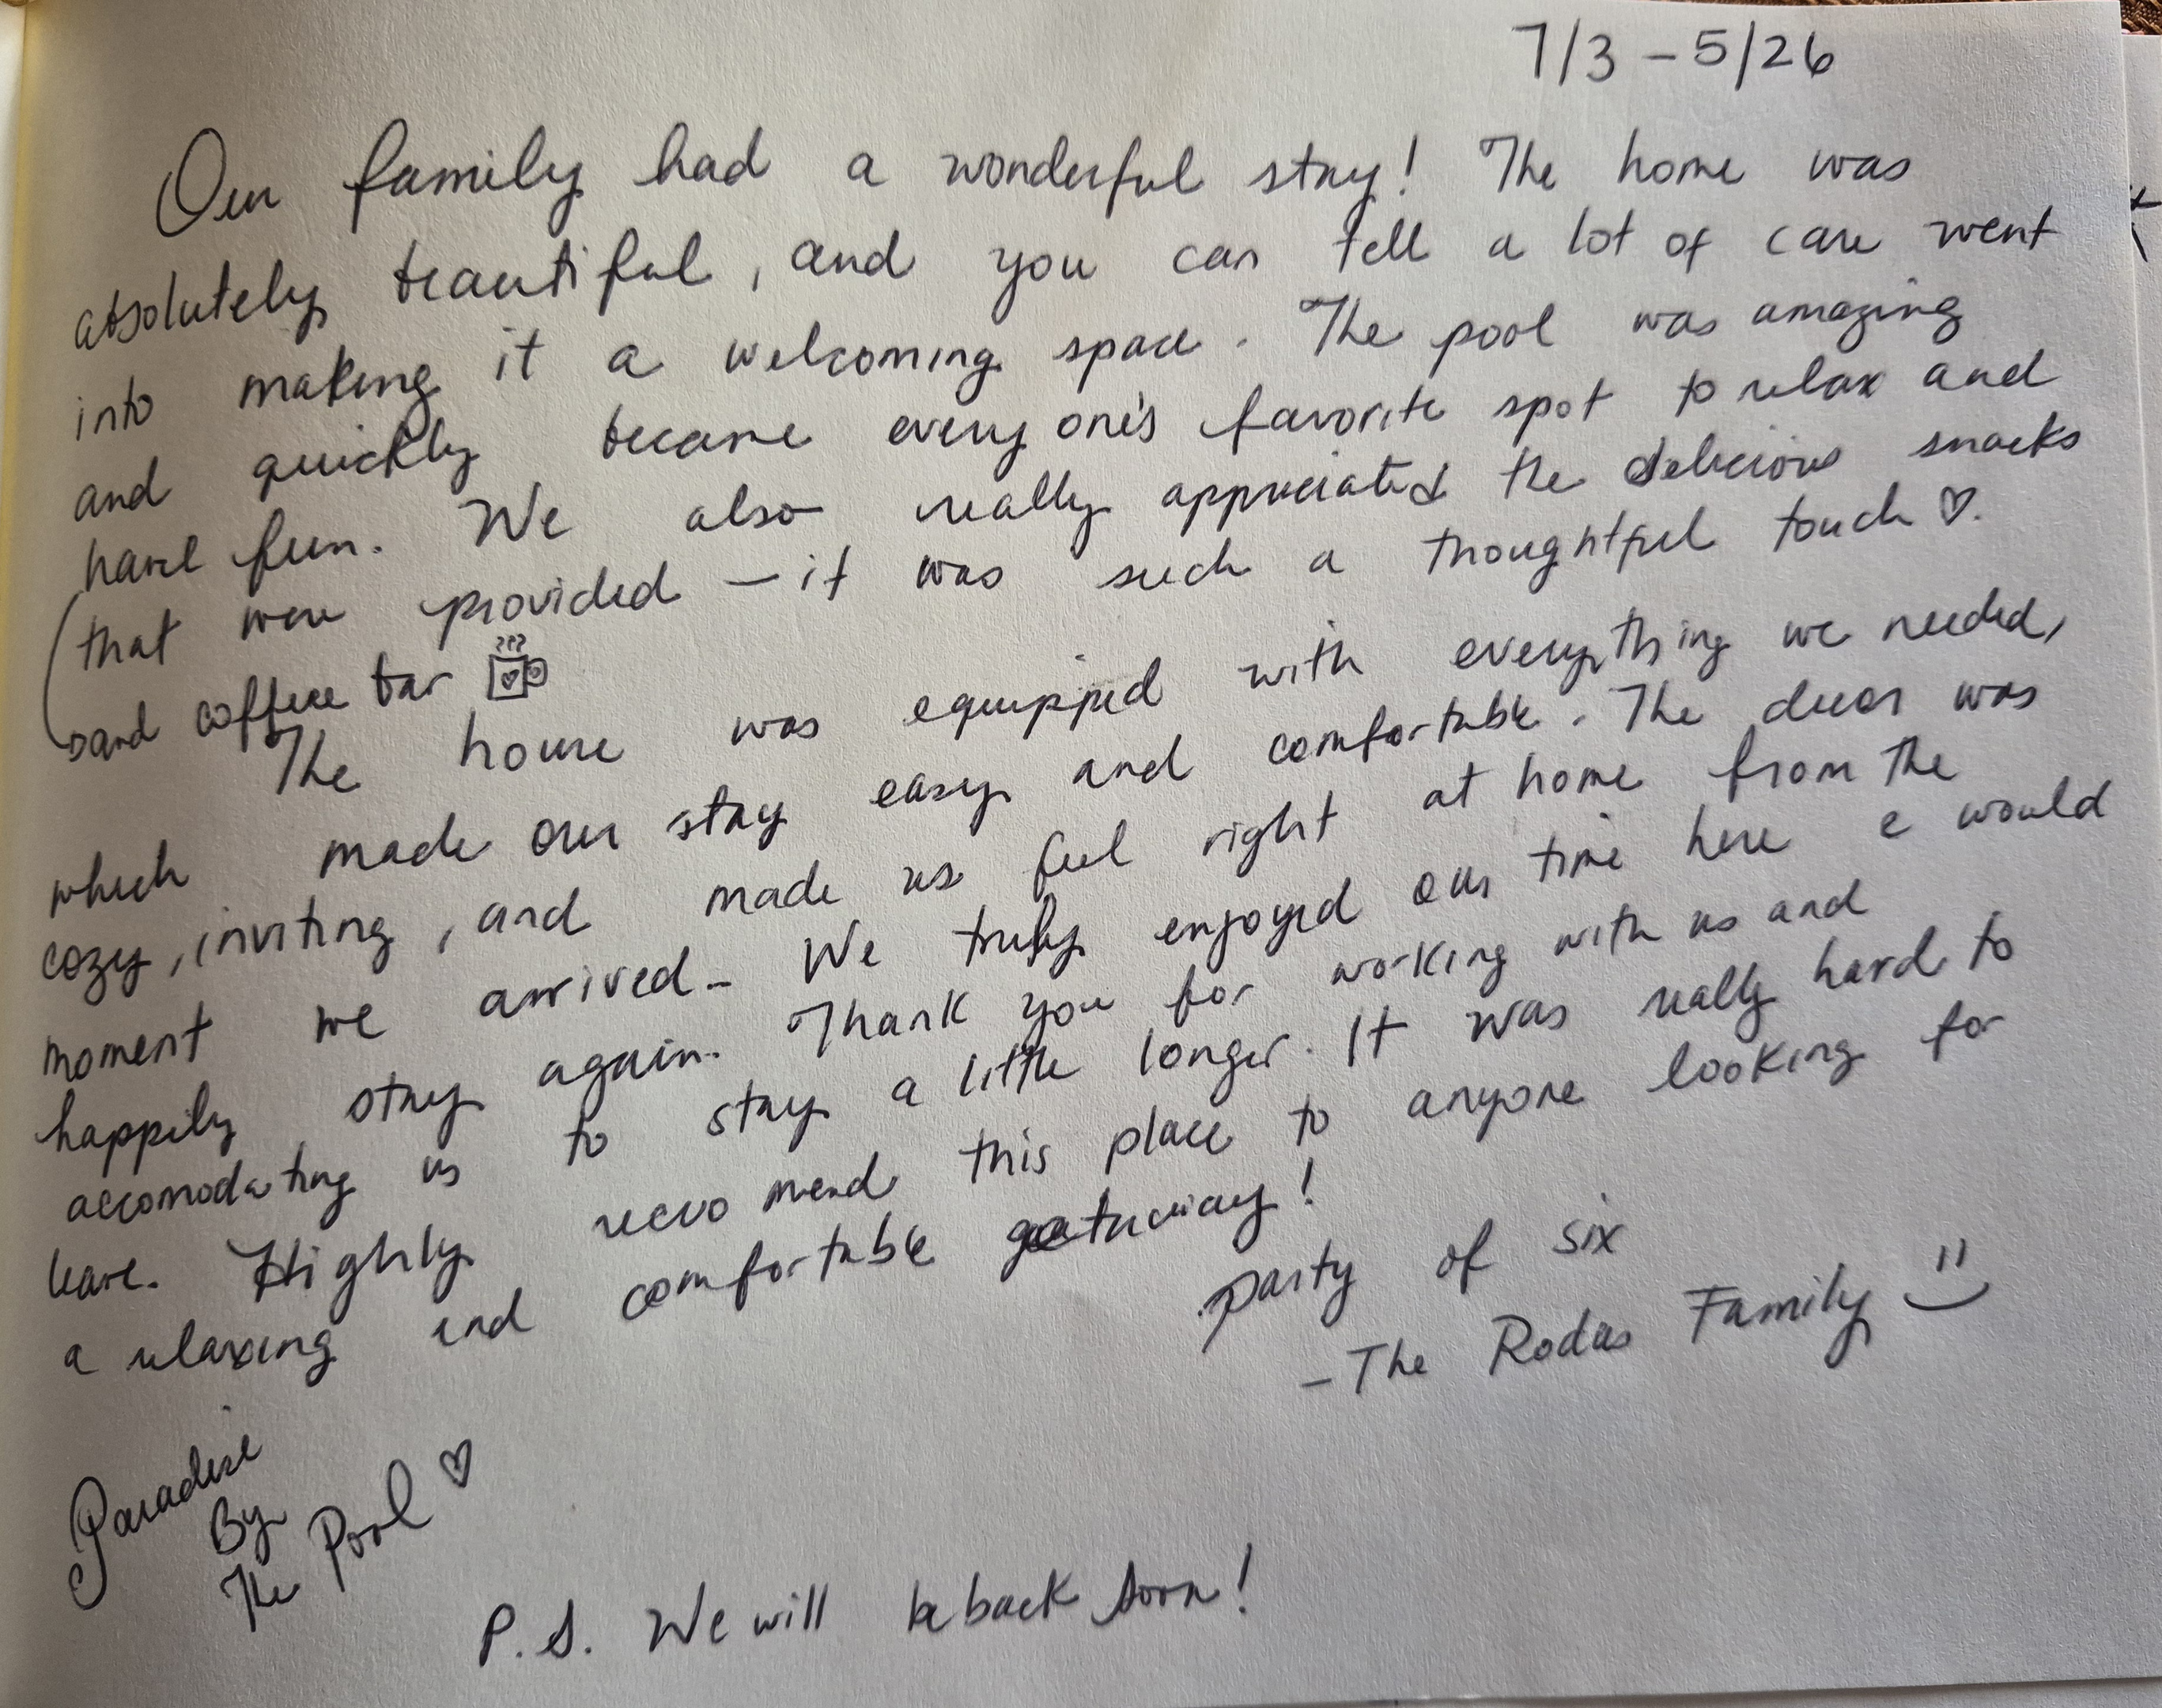 7/3 - 5/26
Our family had a wonderful stay! The home was
absolutely beautiful, and you can tell a lot of care went
into making it a welcoming space. The pool was amazing
and quickly became everyone's favorite spot to relax and
have fun. We also really appreciated the delicious snacks
that were provided - it was such a thoughtful touch ♡.
and coffee bar
The house was equipped with everything we needed,
which made our stay easy and comfortable. The decor was
cozy, inviting, and made us feel right at home from the
moment we arrived. We truly enjoyed our time here & would
happily stay again. Thank you for working with us and
accomodating us to stay a little longer. It was really hard to
leave. Highly recomend this place to anyone looking for
a relaxing and comfortable getaway!
party of six
- The Rodas Family
Paradise
By
The Pool ♡
P.S. We will be back soon!